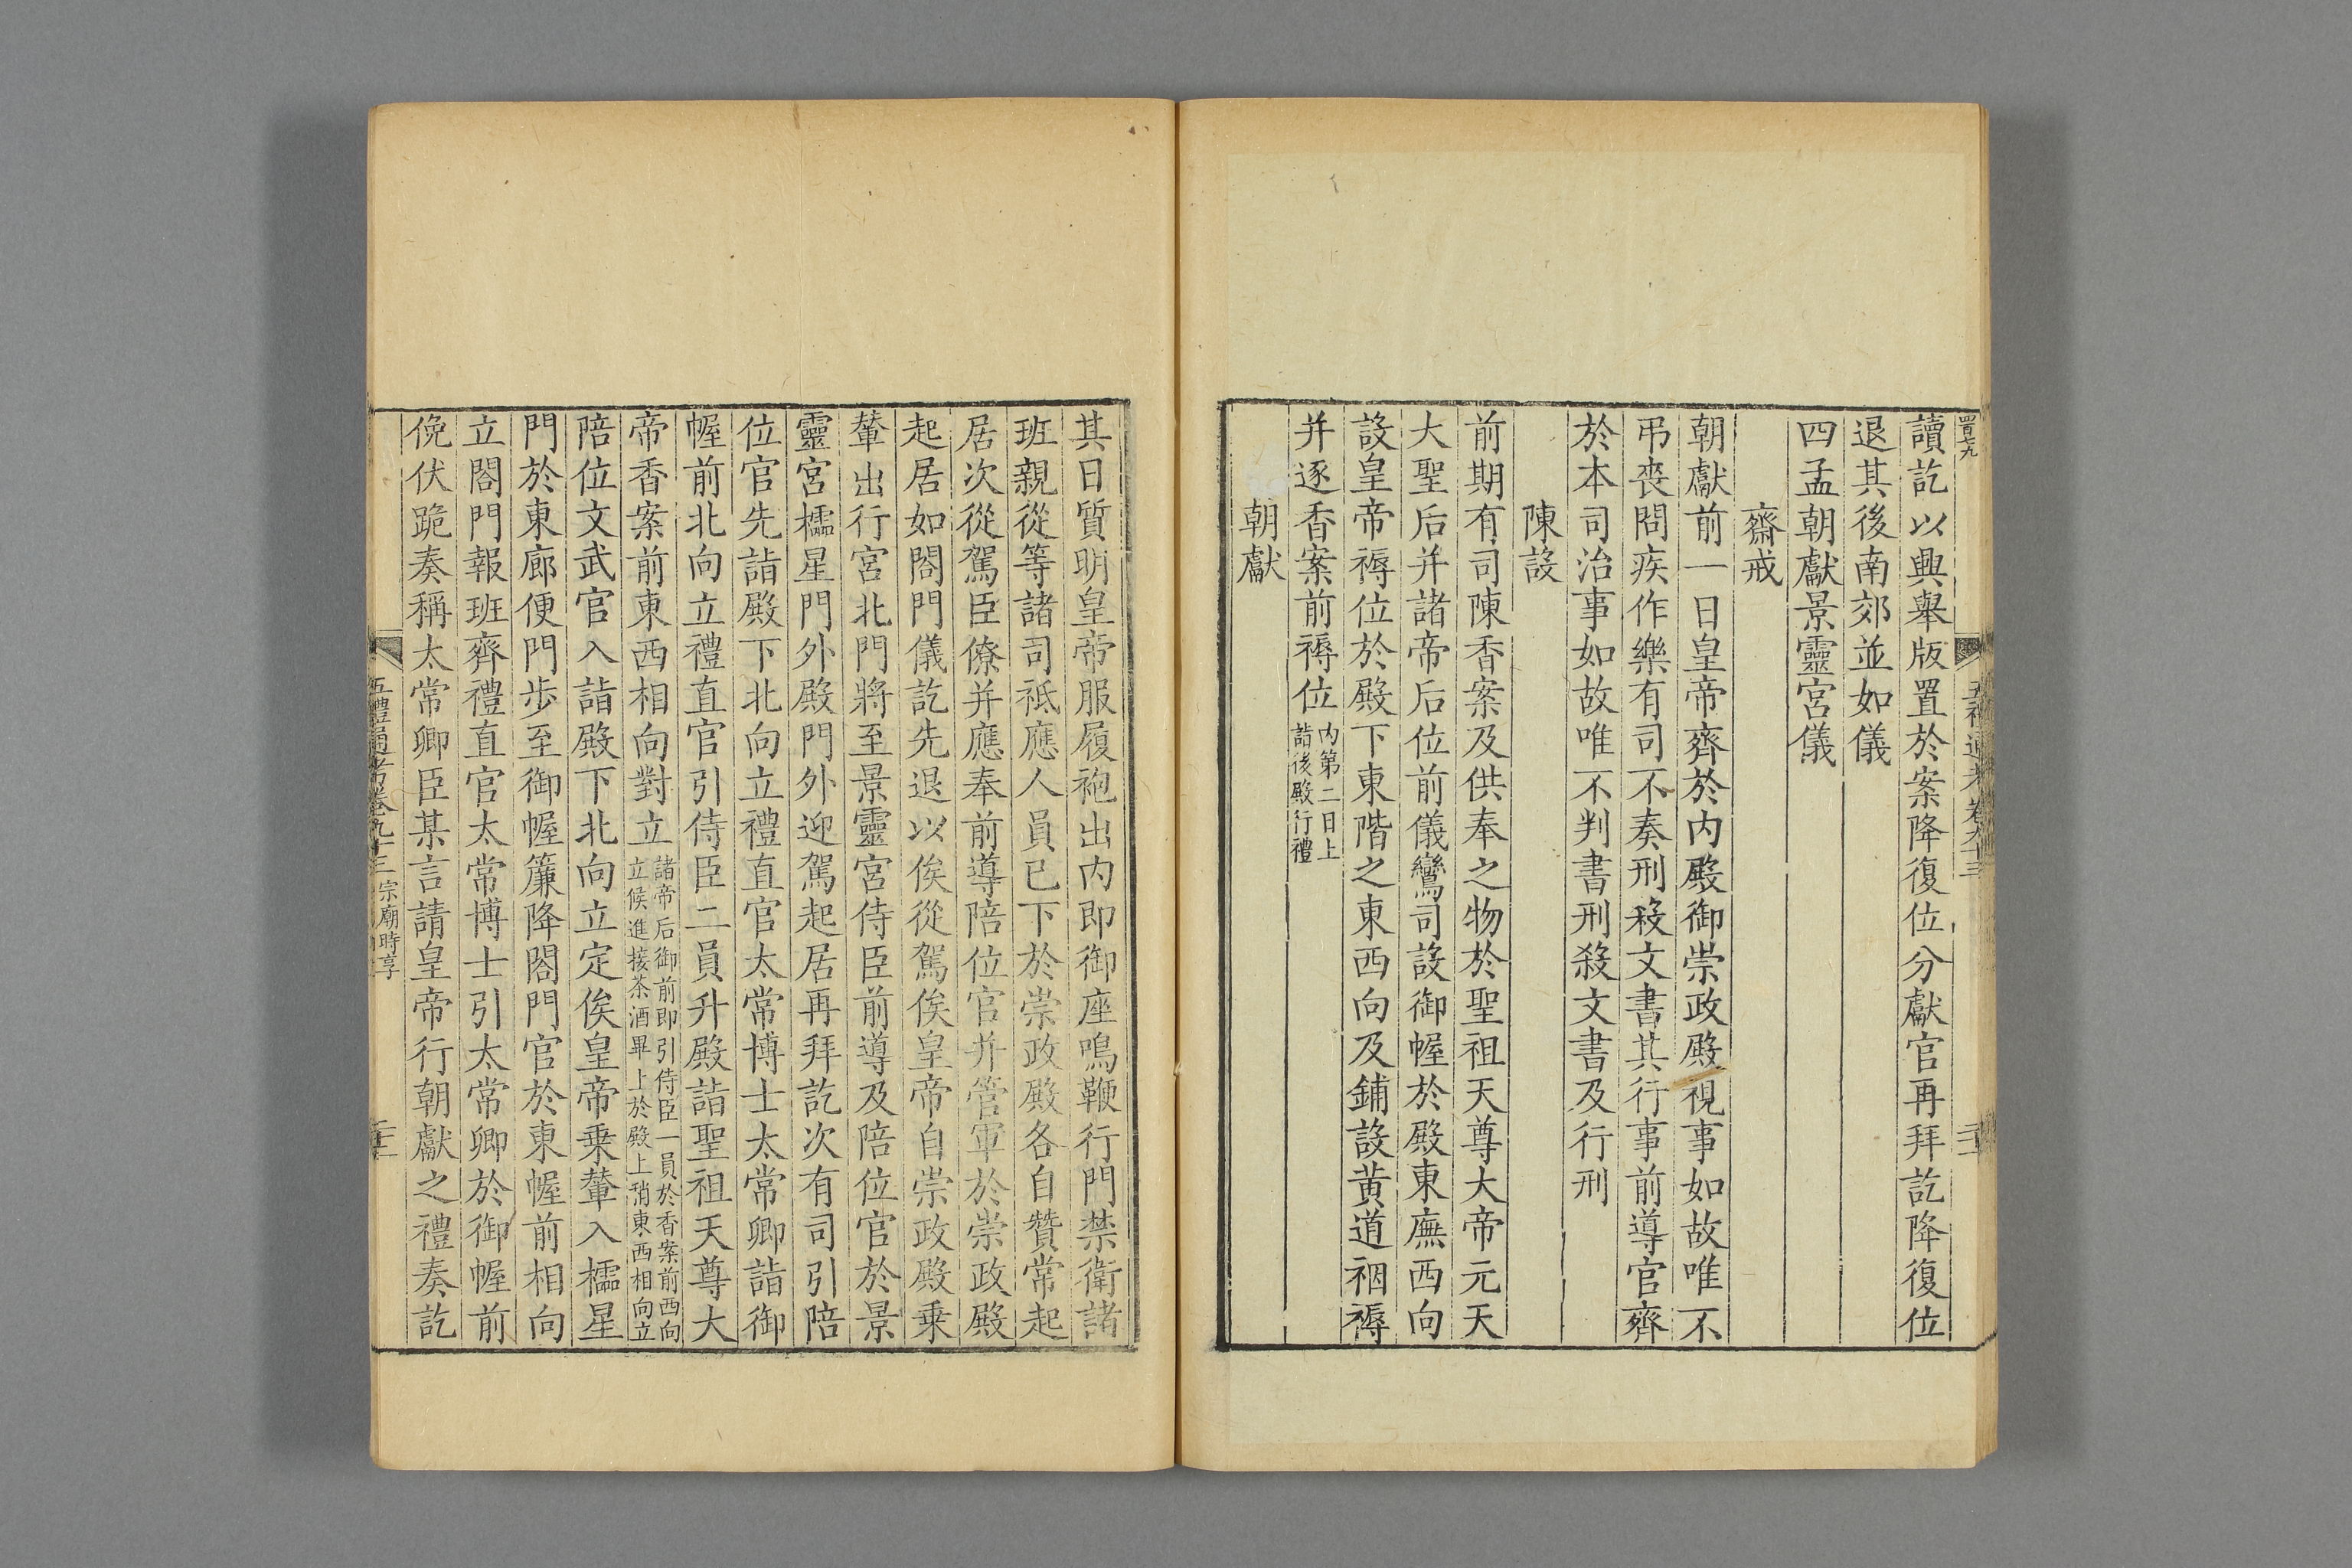 四百七九
五禮通考卷九十三
讀訖以興舉版置於案降復位分獻官再拜訖降復位
退其後南郊並如儀
四孟朝獻景靈宮儀
齋戒
朝獻前一日皇帝齊於内殿御崇政殿視事如故唯不
弔喪問疾作樂有司不奏刑殺文書其行事前導官齊
於本司治事如故唯不判書刑殺文書及行刑
陳設
前期有司陳香案及供奉之物於聖祖天尊大帝元天
大聖后并諸帝后位前儀鸞司設御幄於殿東廡西向
設皇帝褥位於殿下東階之東西向及鋪設黄道裀褥
并逐香案前褥位内第二日上
詣後殿行禮
朝獻
其日質明皇帝服履袍出内即御座鳴鞭行門禁衛諸
班親從等諸司祗應人員已下於崇政殿各自贊常起
居次從駕臣僚并應奉前導陪位官并管軍於崇政殿
起居如閤門儀訖先退以俟從駕俟皇帝自崇政殿乗
輦出行宮北門將至景靈宮侍臣前導及陪位官於景
靈宮櫺星門外殿門外迎駕起居再拜訖次有司引陪
位官先詣殿下北向立禮直官太常博士太常卿詣御
幄前北向立禮直官引侍臣二員升殿詣聖祖天尊大
帝香案前東西相向對立諸帝后御前即引侍臣一員於香案前西向
立候進接茶酒畢上於殿上稍東西相向立
陪位文武官入詣殿下北向立定俟皇帝乗輦入櫺星
門於東廊便門步至御幄簾降閤門官於東幄前相向
立閤門報班齊禮直官太常博士引太常卿於御幄前
俛伏跪奏稱太常卿臣某言請皇帝行朝獻之禮奏訖
五禮通考卷九十三 宗廟時享